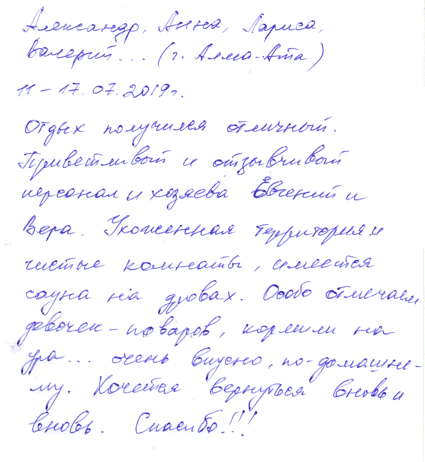 Александр, Анна, Лариса,
Валерий... (г. Алма-Ата)
11-17.07.2019г.
Отдых получился отличный.
Приветливый и отзывчивый
персонал и хозяева Евгений и
Вера. Ухоженная территория и
чистые комнаты, имеется
сауна на дровах. Особо отмечаем
девочек-поваров, кормили на
ура... очень вкусно, по-домашне-
му. Хочется вернуться вновь и
вновь. Спасибо!!!